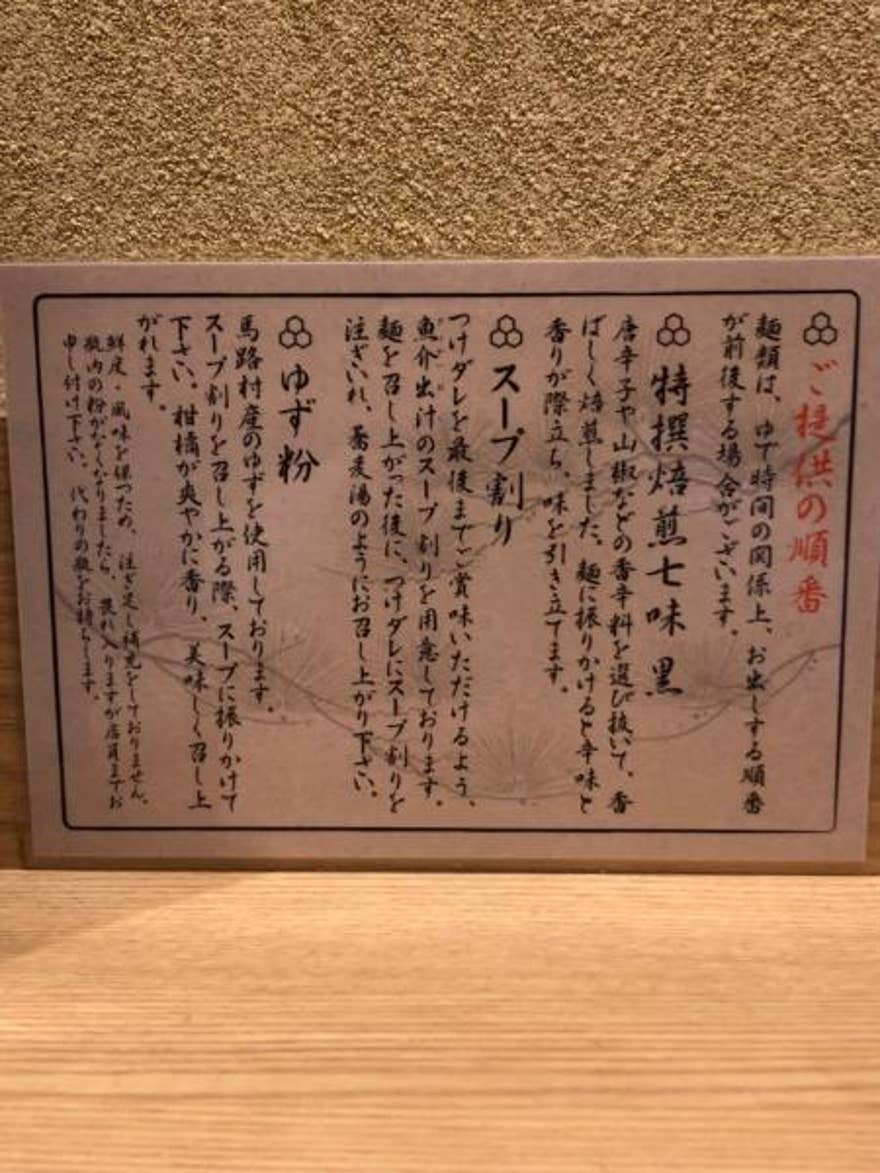 ご提供の順番
麺類は、ゆで時間の関係上、お出しする順番
が前後する場合がございます。
特撰焙煎七味 黒
唐辛子や山椒などの香辛料を選び抜いて、香
ばしく焙煎しました。麺に振りかけると辛味と
香りが際立ち、味を引き立てます。
スープ割り
つけダレを最後までご賞味いただけるよう、
魚介出汁のスープ割りを用意しております。
麺を召し上がった後に、つけダレにスープ割りを
注ぎいれ、蕎麦湯のようにお召し上がり下さい。
ゆず粉
馬路村産のゆずを使用しております。
スープ割りを召し上がる際、スープに振りかけて
下さい。柑橘が爽やかに香り、美味しく召し上
がれます。
鮮度・風味を保つため、注ぎ足し補充をしておりません。
瓶内の粉がなくなりましたら、恐れ入りますが店員までお
申し付け下さい。代わりの瓶をお持ちします。